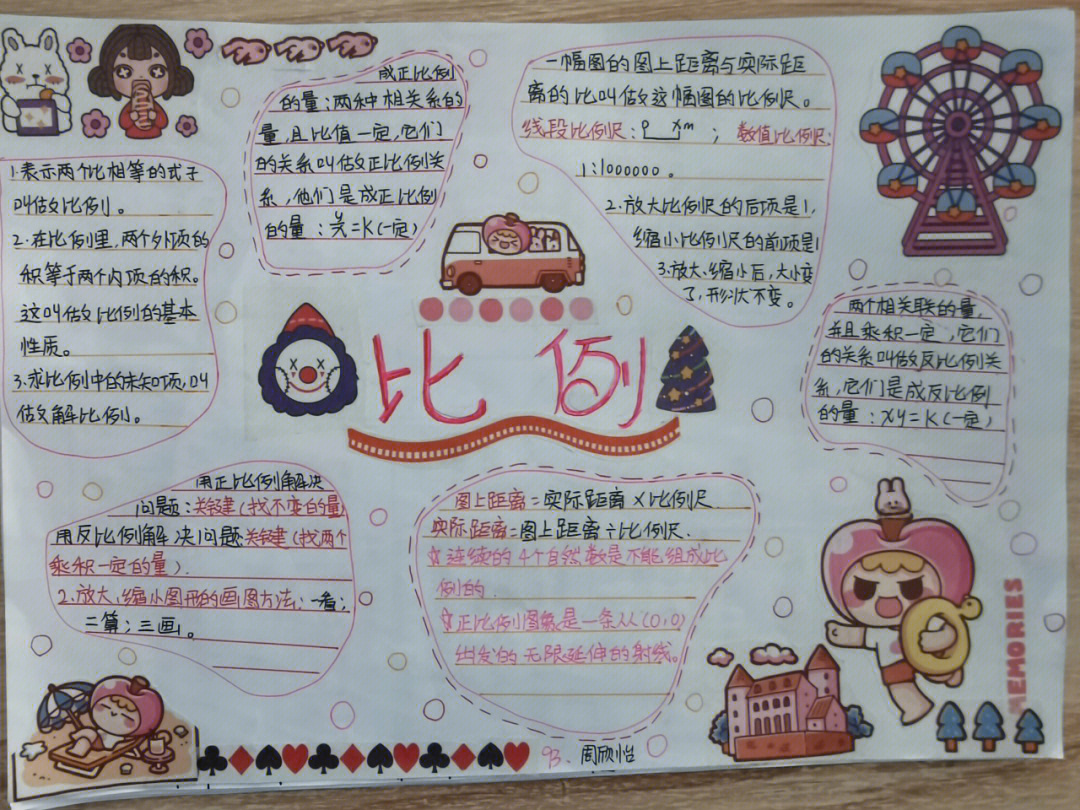 比例
1.表示两个比相等的式子
叫做比例。
2.在比例里,两个外项的
积等于两个内项的积。
这叫做比例的基本
性质。
3.求比例中的未知项,叫
做解比例。
成正比例
的量:两种相关系的
量,且比值一定,它们
的关系叫做正比例关
系,他们是成正比例
的量:=K(一定)
一幅图的图上距离与实际距
离的比叫做这幅图的比例尺。
线段比例尺: ; 数值比例尺:
1:1000000。
2.放大比例尺的后项是1,
缩小比例尺的前项是1
3.放大、缩小后,大小变
了,形状不变。
两个相关联的量,
并且乘积一定,它们
的关系叫做反比例关
系,它们是成反比例
的量:xy=K(一定)
用正比例解决
问题:关键(找不变的量)
用反比例解决问题:关键(找两个
乘积一定的量).
2.放大、缩小图形的画图方法:一看;
二算;三画。
图上距离=实际距离×比例尺.
实际距离=图上距离÷比例尺.
☆连续的4个自然数是不能组成比
例的.
☆正比例图象是一条从(0,0)
出发的无限延伸的射线。
MEMORIES
周欣怡